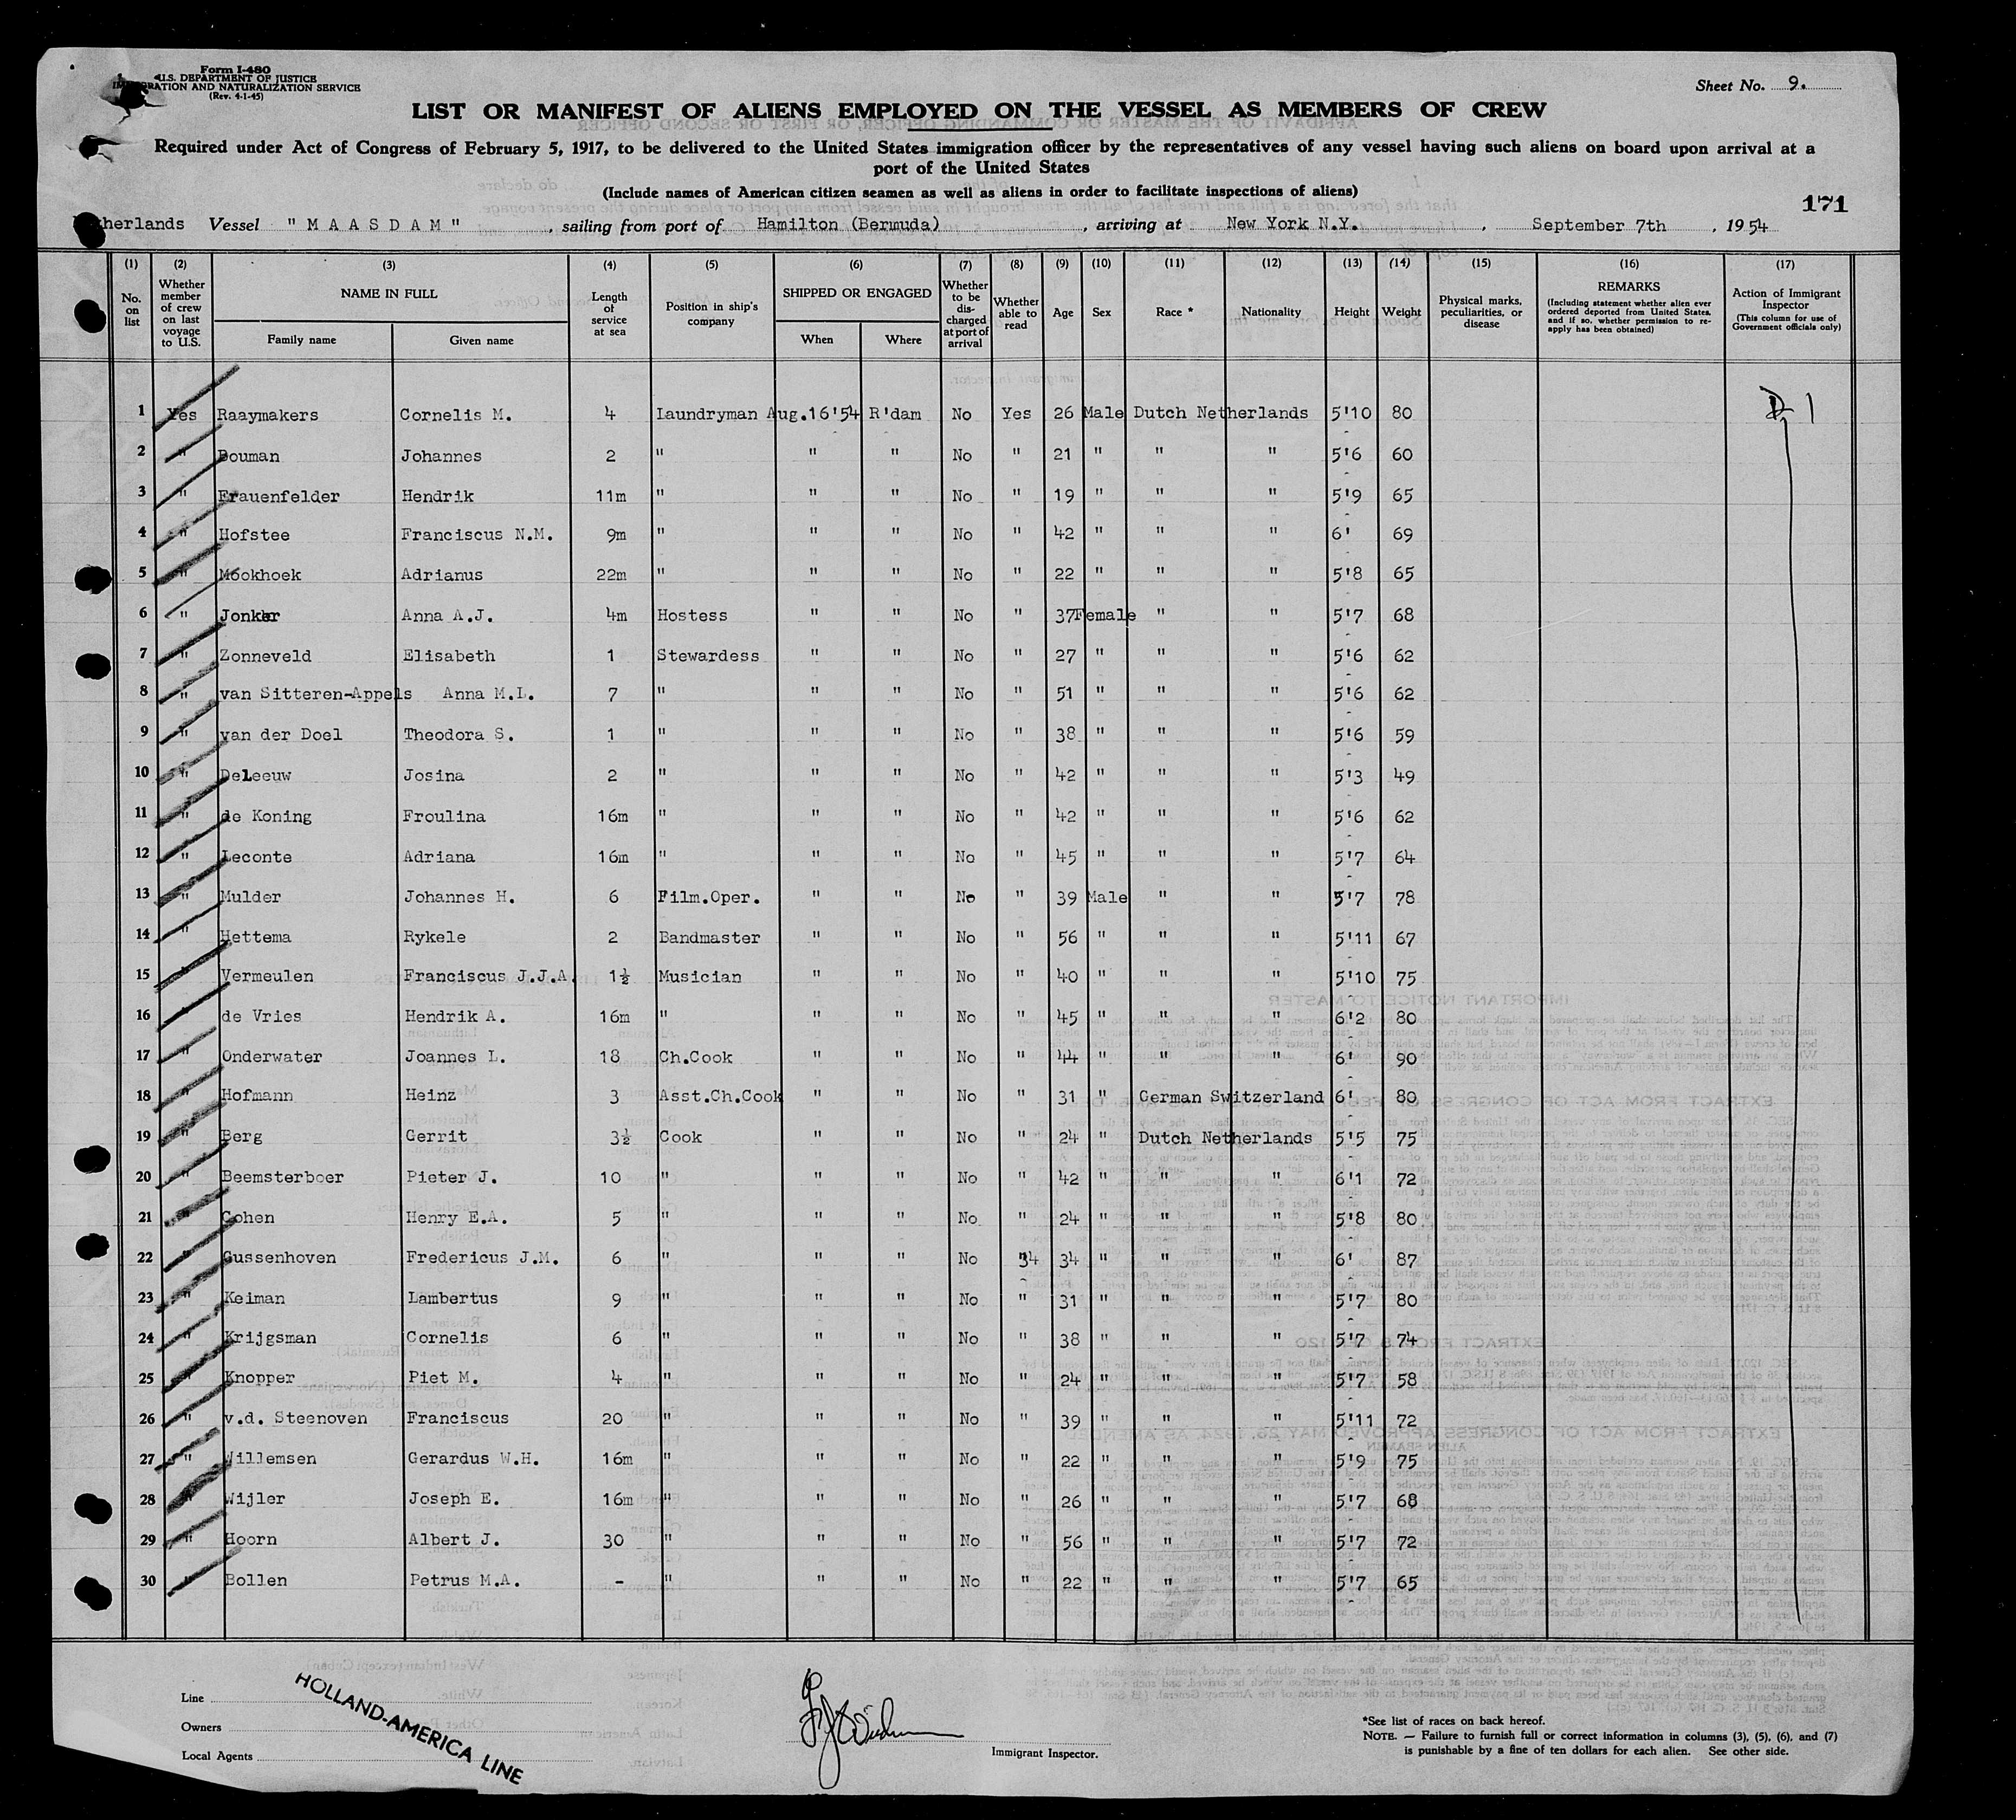 Form I-480
U.S. DEPARTMENT OF JUSTICE
IMMIGRATION AND NATURALIZATION SERVICE
(Rev. 4-1-45)
Sheet No. 9.
LIST OR MANIFEST OF ALIENS EMPLOYED ON THE VESSEL AS MEMBERS OF CREW
Required under Act of Congress of February 5, 1917, to be delivered to the United States immigration officer by the representatives of any vessel having such aliens on board upon arrival at a
port of the United States
(Include names of American citizen seamen as well as aliens in order to facilitate inspections of aliens)
171
therlands Vessel "MAASDAM", sailing from port of Hamilton (Bermuda), arriving at New York N.Y., September 7th, 1954
(1) (2) (3) (4) (5) (6) (7) (8) (9) (10) (11) (12) (13) (14) (15) (16) (17)
No. on list | Whether member of crew on last voyage to U.S. | NAME IN FULL | Family name | Given name | Length of service at sea | Position in ship's company | SHIPPED OR ENGAGED | When | Where | Whether to be discharged at port of arrival | Whether able to read | Age | Sex | Race * | Nationality | Height | Weight | Physical marks, peculiarities, or disease | REMARKS (Including statement whether alien ever ordered deported from United States, and if so, whether permission to re-apply has been obtained) | Action of Immigrant Inspector (This column for use of Government officials only)
1 Yes Raaymakers Cornelis M. 4 Laundryman Aug.16'54 R'dam No Yes 26 Male Dutch Netherlands 5'10 80
2 " Bouman Johannes 2 " " " No " 21 " " " 5'6 60
3 " Frauenfelder Hendrik 11m " " " No " 19 " " " 5'9 65
4 " Hofstee Franciscus N.M. 9m " " " No " 42 " " " 6' 69
5 " Mookhoek Adrianus 22m " " " No " 22 " " " 5'8 65
6 " Jonker Anna A.J. 4m Hostess " " No " 37 Female " " 5'7 68
7 " Zonneveld Elisabeth 1 Stewardess " " No " 27 " " " 5'6 62
8 " van Sitteren-Appels Anna M.L. 7 " " " No " 51 " " " 5'6 62
9 " van der Doel Theodora S. 1 " " " No " 38 " " " 5'6 59
10 " Deleeuw Josina 2 " " " No " 42 " " " 5'3 49
11 " de Koning Froulina 16m " " " No " 42 " " " 5'6 62
12 " Leconte Adriana 16m " " " No " 45 " " " 5'7 64
13 " Mulder Johannes H. 6 Film.Oper. " " No " 39 Male " " 5'7 78
14 " Hettema Rykele 2 Bandmaster " " No " 56 " " " 5'11 67
15 " Vermeulen Franciscus J.J.A. 1½ Musician " " No " 40 " " " 5'10 75
16 " de Vries Hendrik A. 16m " " " No " 45 " " " 6'2 80
17 " Onderwater Joannes L. 18 Ch.Cook " " No " 44 " " " 6' 90
18 " Hofmann Heinz 3 Asst.Ch.Cook " " No " 31 " German Switzerland 6' 80
19 " Berg Gerrit 3½ Cook " " No " 24 " Dutch Netherlands 5'5 75
20 " Beemsterboer Pieter J. 10 " " " No " 42 " " " 6'1 72
21 " Cohen Henry E.A. 5 " " " No " 24 " " " 5'8 80
22 " Gussenhoven Fredericus J.M. 6 " " " No 34 34 " " " 6' 87
23 " Keiman Lambertus 9 " " " No " 31 " " " 5'7 80
24 " Krijgsman Cornelis 6 " " " No " 38 " " " 5'7 74
25 " Knopper Piet M. 4 " " " No " 24 " " " 5'7 58
26 " v.d. Steenoven Franciscus 20 " " " No " 39 " " " 5'11 72
27 " Willemsen Gerardus W.H. 16m " " " No " 22 " " " 5'9 75
28 " Wijler Joseph E. 16m " " " No " 26 " " " 5'7 68
29 " Hoorn Albert J. 30 " " " No " 56 " " " 5'7 72
30 " Bollen Petrus M.A. - " " " No " 22 " " " 5'7 65
Line
Owners
Local Agents
HOLLAND-AMERICA LINE
Immigrant Inspector.
*See list of races on back hereof.
NOTE. — Failure to furnish full or correct information in columns (3), (5), (6), and (7)
is punishable by a fine of ten dollars for each alien. See other side.